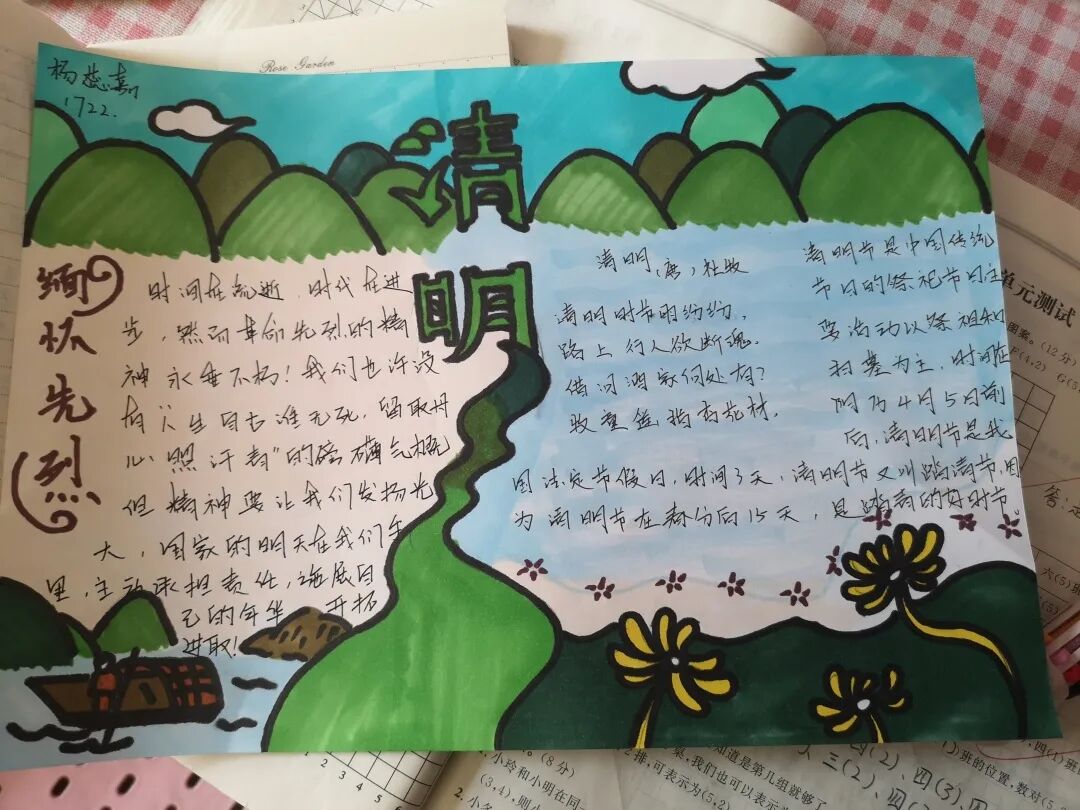 Rose Garden
杨蕊嘉
1722.
清明
缅怀先烈
时间在流逝,时代在进
步,然而革命先烈的精
神永垂不朽!我们也许没
有"人生自古谁无死,留取丹
心照汗青"的磅礴气概
但精神要让我们发扬光
大,国家的明天在我们手
里,主动承担责任,施展自
己的年华 开拓
进取!
清明(唐)杜牧
清明时节雨纷纷,
路上行人欲断魂.
借问酒家何处有?
牧童遥指杏花村.
清明节是中国传统
节日的祭祀节日主
要活动以祭祖和
扫墓为主,时间在
阴历4月5日前
后,清明节是我
国法定节假日,时间3天,清明节又叫踏清节,因
为清明节在春分后15天,是踏青的好时节.
单元测试
图案。(12分)
F(4,2)
答:
六(5)
(5)
。(8分)
2.小玲和小明在同
(3,4),则小
2.小
排,可表示为(5,2
知道是第几组就够了
我们也可以表示
四(2)、四(3)
三(2)、四
)班的位置,数对(5,
1 2 3 4 5 6